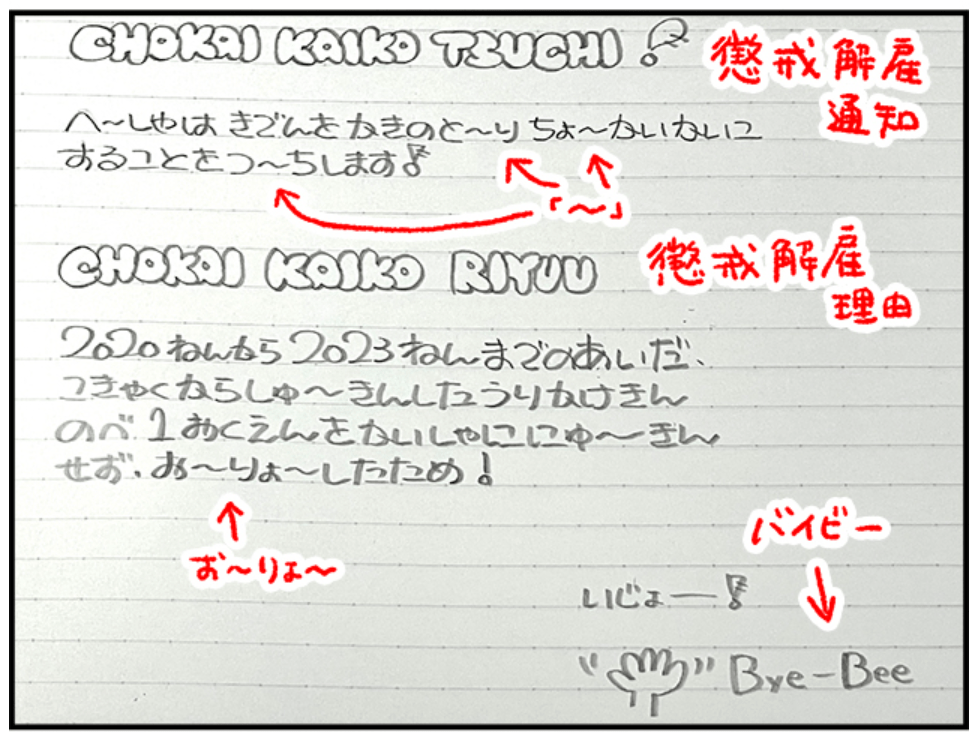 CHOKAI KAIKO TSUCHI !
懲戒解雇
通知
へ〜しゃは きでんを かきのと〜り ちょ〜かいかいこ
することをつ〜ちします!
「〜」
CHOKAI KAIKO RIYUU
懲戒解雇
理由
2020ねんから2023ねんまでのあいだ、
こきゃくからしゅ〜きんしたうりかけきん
のべ1おくえんをかいしゃににゅ〜きん
せず、お〜りょ〜したため!
お〜りょ〜
バイビー
いじょー!
Bye-Bee